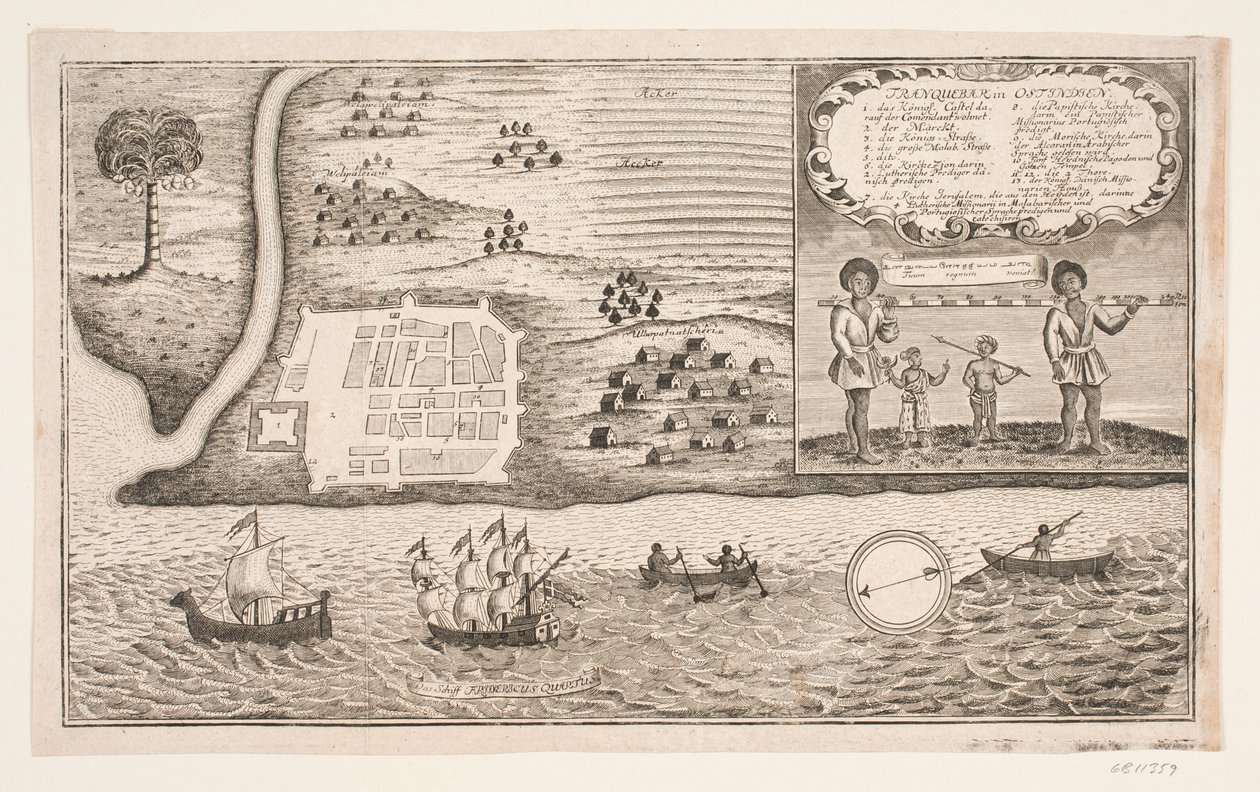 TRANQUEBAR in OST INDIEN.
1. das Königl. Castel da,
rauf der Comendant wohnet.
2. der Marckt.
3. die Königs-Straße.
4. die große Malab. Straße.
5. dito
6. die Kirche Zion darin
2. Lutherische Prediger dä,
nisch predigen.
7. die Kirche Jerusalem, die aus den Heyden ist, darinne
4 Lutherische Missionarii in Malabarischer und
Portugiösischer Sprache predigen und
catechisiren
8. die Papistische Kirche
darin ein Papistischer
Missionarius Portugiösisch
predigt.
9. die Morische Kirche, darin
der Alcoran in Arabischer
Sprache gelesen wird.
10. fünf Heydnische Pagoden und
Götzen Tempel.
11. 12. die 2 Thore.
13. der Königl. Dänisch Missio,
narien Haus.
Tuum regnum veniat!
Acker
Aecker
Welipaleiam
Ullurpatnatscheria
1
2
12
4
4
5
Das Schiff FRIDERICUS QUARTUS
GB11359